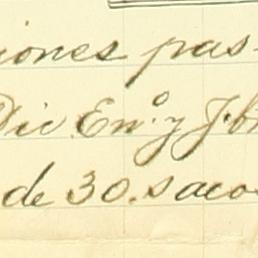 iones pas-
Dic. En.º y F.br
de 30. sacos